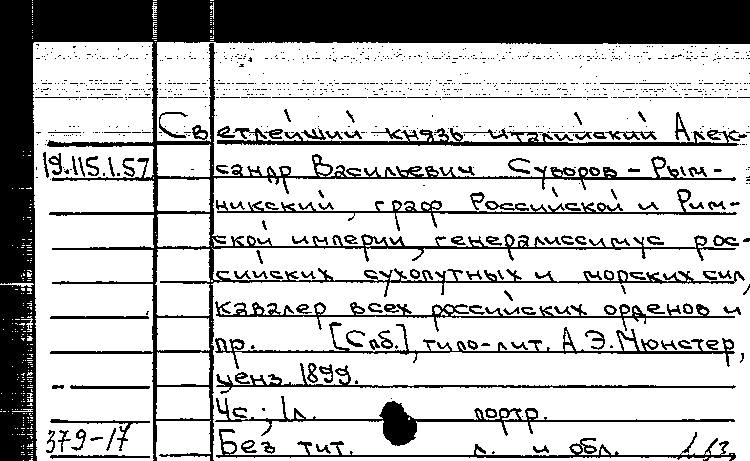 Светлейший князь италийский Алек-
19.115.1.57 сандр Васильевич Суворов – Рым-
никский, граф Российской и Рим-
ской империи, генералиссимус рос-
сийских сухопутных и морских сил,
кавалер всех российских орденов и
пр. [Спб.], типо-лит. А.Э.Мюнстер,
ценз. 1899.
4с.; 1л. портр.
379-17 Без тит. л. и обл.